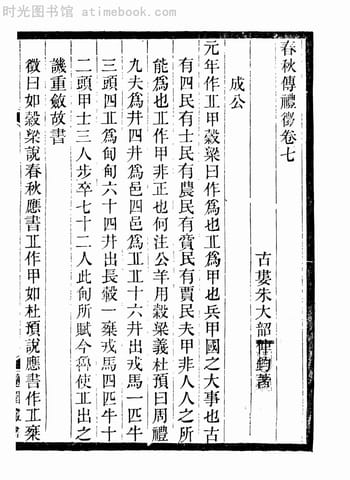 时光图书馆 atimebook.com
春秋傳禮徵卷七
古婁朱大韶仲鈞著
成公
元年作丘甲穀梁曰作爲也丘爲甲也兵甲國之大事也古
有四民有士民有農民有民有賈民夫甲非人人之所
能爲也丘作甲非正也何注公羊用穀梁義杜預曰周禮
九夫爲井四井爲邑四邑爲丘丘十六井出戎馬一匹牛
三頭四丘爲甸甸六十四井出長轂一乘戎馬四匹牛十
二頭甲士三人步卒七十二人此甸所賦今魯使丘出之
譏重斂故書
徵曰如穀梁說春秋應書丘作甲如杜預說應書作丘乘